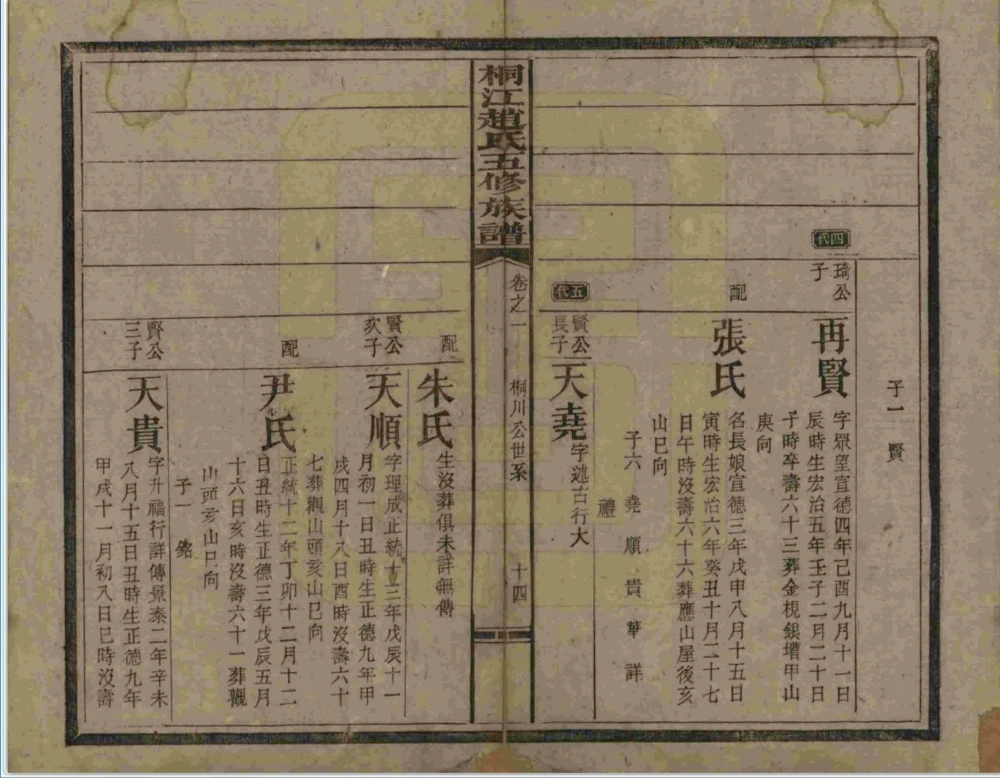 子一 賢
四代
琦公
子
再賢
字眾望宣德四年己酉九月十一日
辰時生宏治五年壬子二月二十日
子時卒壽六十三葬金梘鎖壋甲山
庚向
配
張氏
名長娘宣德三年戊申八月十五日
寅時生宏治六年癸丑十月二十七
日午時沒壽六十六葬應山屋後亥
山巳向
子六 堯 順 貴 華 詳
禮
五代
賢公
長子
天堯
字述古行大
桐江趙氏五修族譜
卷之一
桐川公世系
十四
配
朱氏
生沒葬俱未詳無傳
賢公
次子
天順
字理成正統十三年戊辰十一
月初一日丑時生正德九年甲
戌四月十八日酉時沒壽六十
七葬觀山頭亥山巳向
配
尹氏
正統十二年丁卯十二月十二
日丑時生正德三年戊辰五月
十六日亥時沒壽六十一葬觀
山頭亥山巳向
子一 銘
賢公
三子
天貴
字升福行詳傳景泰二年辛未
八月十五日丑時生正德九年
甲戌十一月初八日巳時沒壽